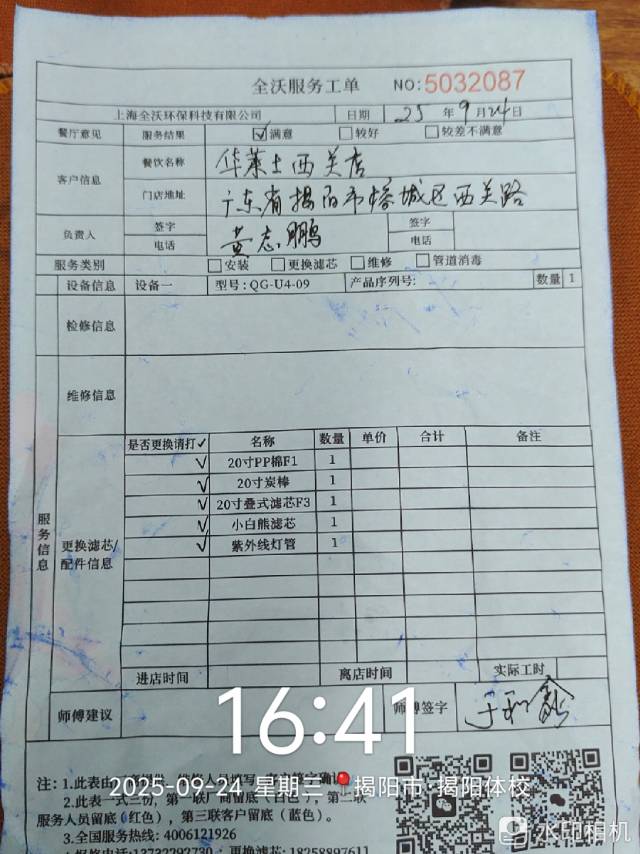 全沃服务工单 NO:5032087
上海全沃环保科技有限公司 日期 25 年 9 月 24 日
餐厅意见 服务结果 ☑满意 □较好 □较差不满意
客户信息 餐饮名称 华莱士西关店
门店地址 广东省揭阳市榕城区西关路
负责人 签字 黄志鹏 签字
电话 电话
服务类别 □安装 □更换滤芯 □维修 □管道消毒
设备信息 设备一 型号:QG-U4-09 产品序列号: 数量 1
检修信息
维修信息
服务信息
更换滤芯/配件信息
是否更换请打✓ 名称 数量 单价 合计 备注
✓ 20寸PP棉F1 1
✓ 20寸炭棒 1
✓ 20寸叠式滤芯F3 1
✓ 小白熊滤芯 1
✓ 紫外线灯管 1
进店时间 离店时间 实际工时
师傅建议 师傅签字
16:41
2025-09-24 星期三 揭阳市 揭阳体校
注: 1.此表由
2.此表一式三份, 第一联厂商留底(白色), 第二联
服务人员留底(红色), 第三联客户留底(蓝色)。
3.全国服务热线: 4006121926
报修电话:13732292730 18258897611
水印相机